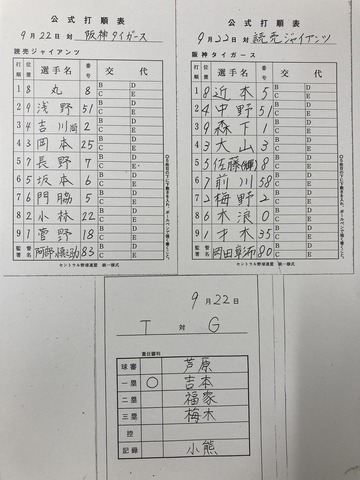 公式打順表
9月22日対 阪神タイガース
読売ジャイアンツ
打順 位置 選手名 番号 交代
1 8 丸 8 B C D E
2 9 浅野 51 B C D E
3 4 吉川尚 2 B C D E
4 3 岡本 25 B C D E
5 7 長野 7 B C D E
6 5 坂本 6 B C D E
7 6 門脇 5 B C D E
8 2 小林 22 B C D E
9 1 菅野 18 B C D E
監督 署名 阿部慎之助 83 B C D E
セントラル野球連盟 統一様式
公式打順表
9月22日対 読売ジャイアンツ
阪神タイガース
打順 位置 選手名 番号 交代
1 8 近本 5 B C D E
2 4 中野 51 B C D E
3 9 森下 1 B C D E
4 3 大山 3 B C D E
5 5 佐藤(輝) 8 B C D E
6 7 前川 58 B C D E
7 2 梅野 2 B C D E
8 6 木浪 0 B C D E
9 1 才木 35 B C D E
監督 署名 岡田彰布 80 B C D E
セントラル野球連盟 統一様式
9月22日
T 対 G
責任審判
球審 芦原
一塁 ○ 吉本
二塁 福家
三塁 梅木
控
記録 小熊